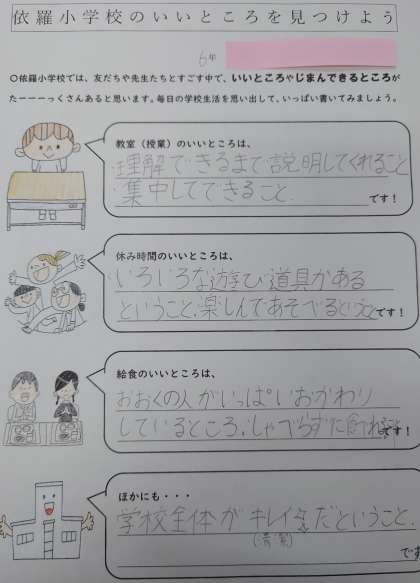 依羅小学校のいいところを見つけよう
6年
〇依羅小学校では、友だちや先生たちとすごす中で、いいところやじまんできるところが
たーーーっくさんあると思います。毎日の学校生活を思い出して、いっぱい書いてみましょう。
教室（授業）のいいところは、
理解できるまで説明してくれること
集中してできること.
です！
休み時間のいいところは、
いろいろな遊び道具がある
ということ、楽しんであそべるという
です！
給食のいいところは、
おおくの人がいっぱいおかわり
しているところ、しゃべらずに
ほかにも・・・
学校全体がキレイだということ.
(清潔)
です